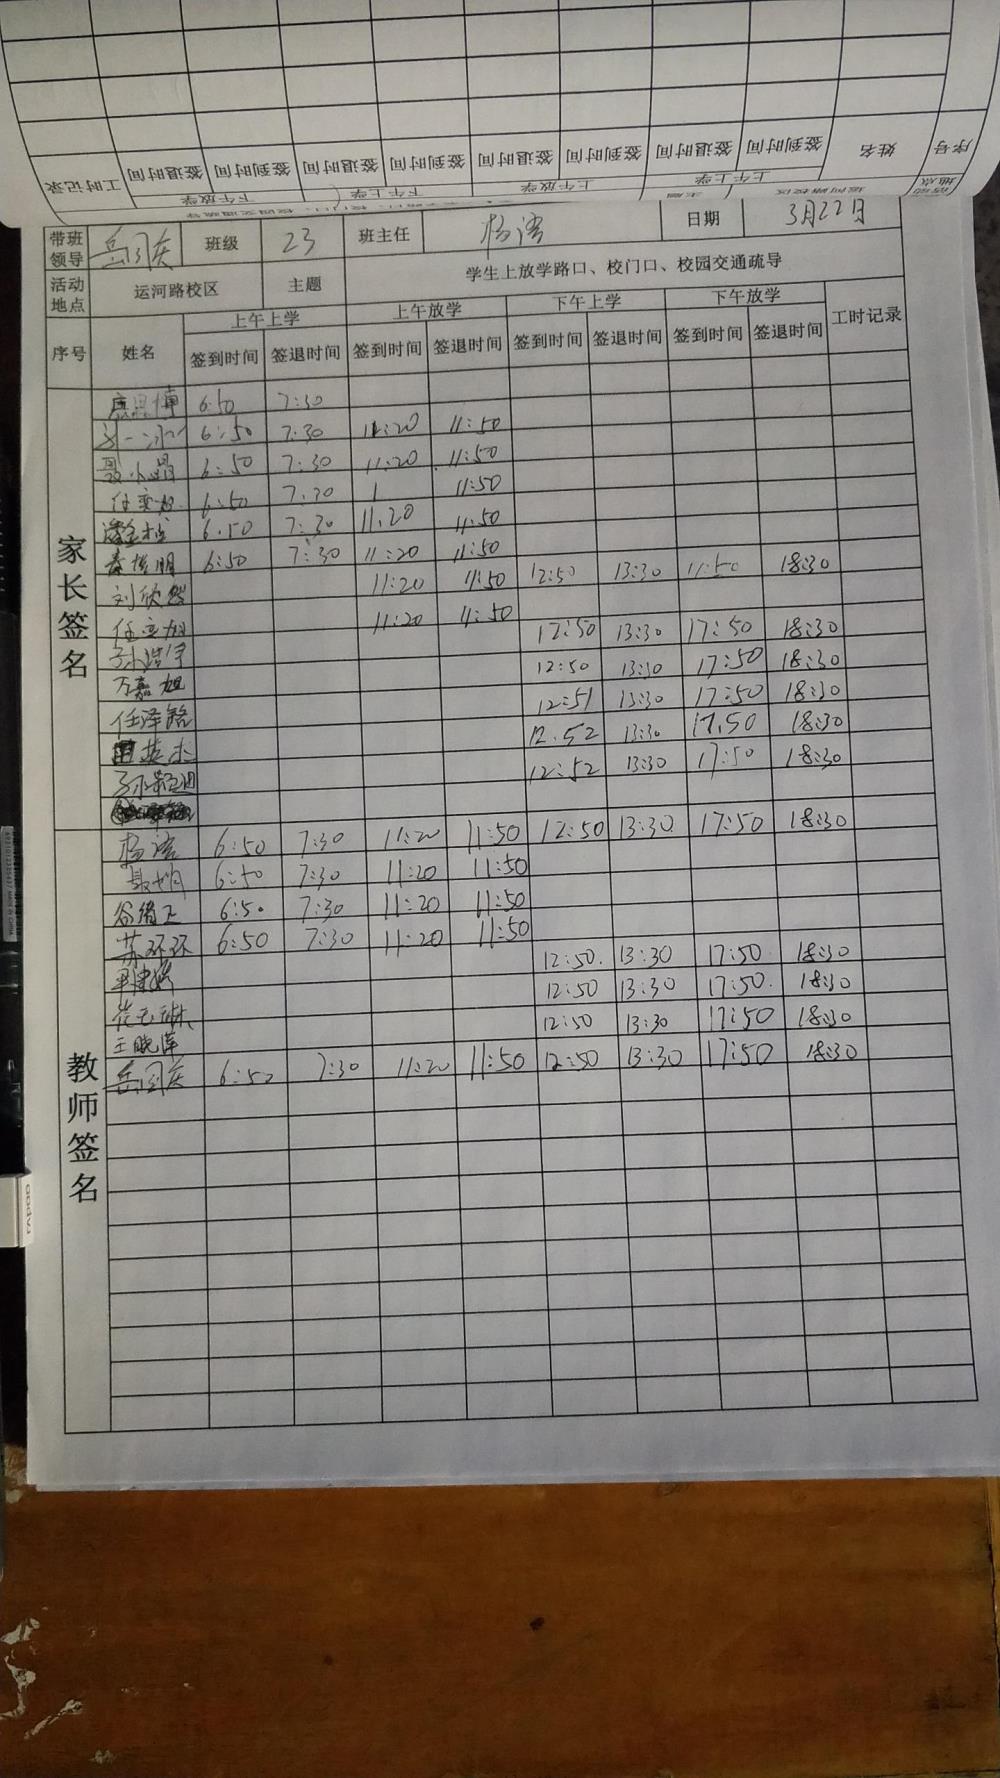 工时记录 签退时间 签到时间 签退时间 签到时间 签退时间 签到时间 签退时间 签到时间 姓名 序号
下午放学 下午上学 上午放学 上午上学
主题 运河路校区 活动地点
带班领导 岳国庆 班级 23 班主任 杨涛 日期 3月22日
活动地点 运河路校区 主题 学生上放学路口、校门口、校园交通疏导
序号 姓名 上午上学 上午放学 下午上学 下午放学 工时记录
签到时间 签退时间 签到时间 签退时间 签到时间 签退时间 签到时间 签退时间
家长签名
6:50 7:30
6:50 7:30 11:20 11:50
聂小晶 6:50 7:30 11:20 11:50
6:50 7.30 1 11:50
6.50 7:30 11.20 11:50
6:50 7:30 11:20 11:50
刘欣然 11:20 11:50 12:50 13:30 11:50 18:30
11:20 11:50
12:50 13:30 17:50 18:30
万嘉旭 12:50 13:30 17:50 18:30
任泽铭 12:51 13:30 17:50 18:30
12.52 13:30 17.50 18:30
12:52 13:30 17:50 18:30
教师签名
杨涛 6:50 7:30 11:20 11:50 12:50 13:30 17:50 18:30
6:50 7:30 11:20 11:50
6:50 7:30 11:20 11:50
苏环环 6:50 7:30 11:20 11:50
12:50. 13:30 17:50 18:30
12:50 13:30 17:50. 18:30
王晓萍 12:50 13:30 17:50 18:30
岳国庆 6:50 7:30 11:20 11:50 12:50 13:30 17:50 18:30